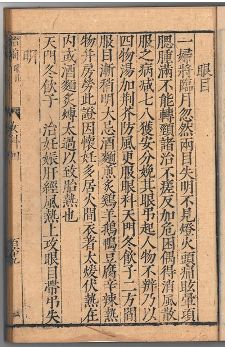 眼目
一婦將臨月忽然兩目失明不見燈火頭痛眩暈項
腮腫滿不能轉頸諸治不瘥反加危困偶得消風散
服之病减七八獲安分娩其眼吊起人物不辨乃以
四物湯加荆芥防風更服眼科天門冬飲子二方間
服目漸稍明大忌酒麵煎炙鷄羊鵝鴨豆腐辛辣熱
物并房勞此證因懷妊多居火間衣著太煖伏熱在
内或酒麵炙煿太過以致胎熱也
天門冬飲子 治妊娠肝經風熱上攻眼目帶吊失
明